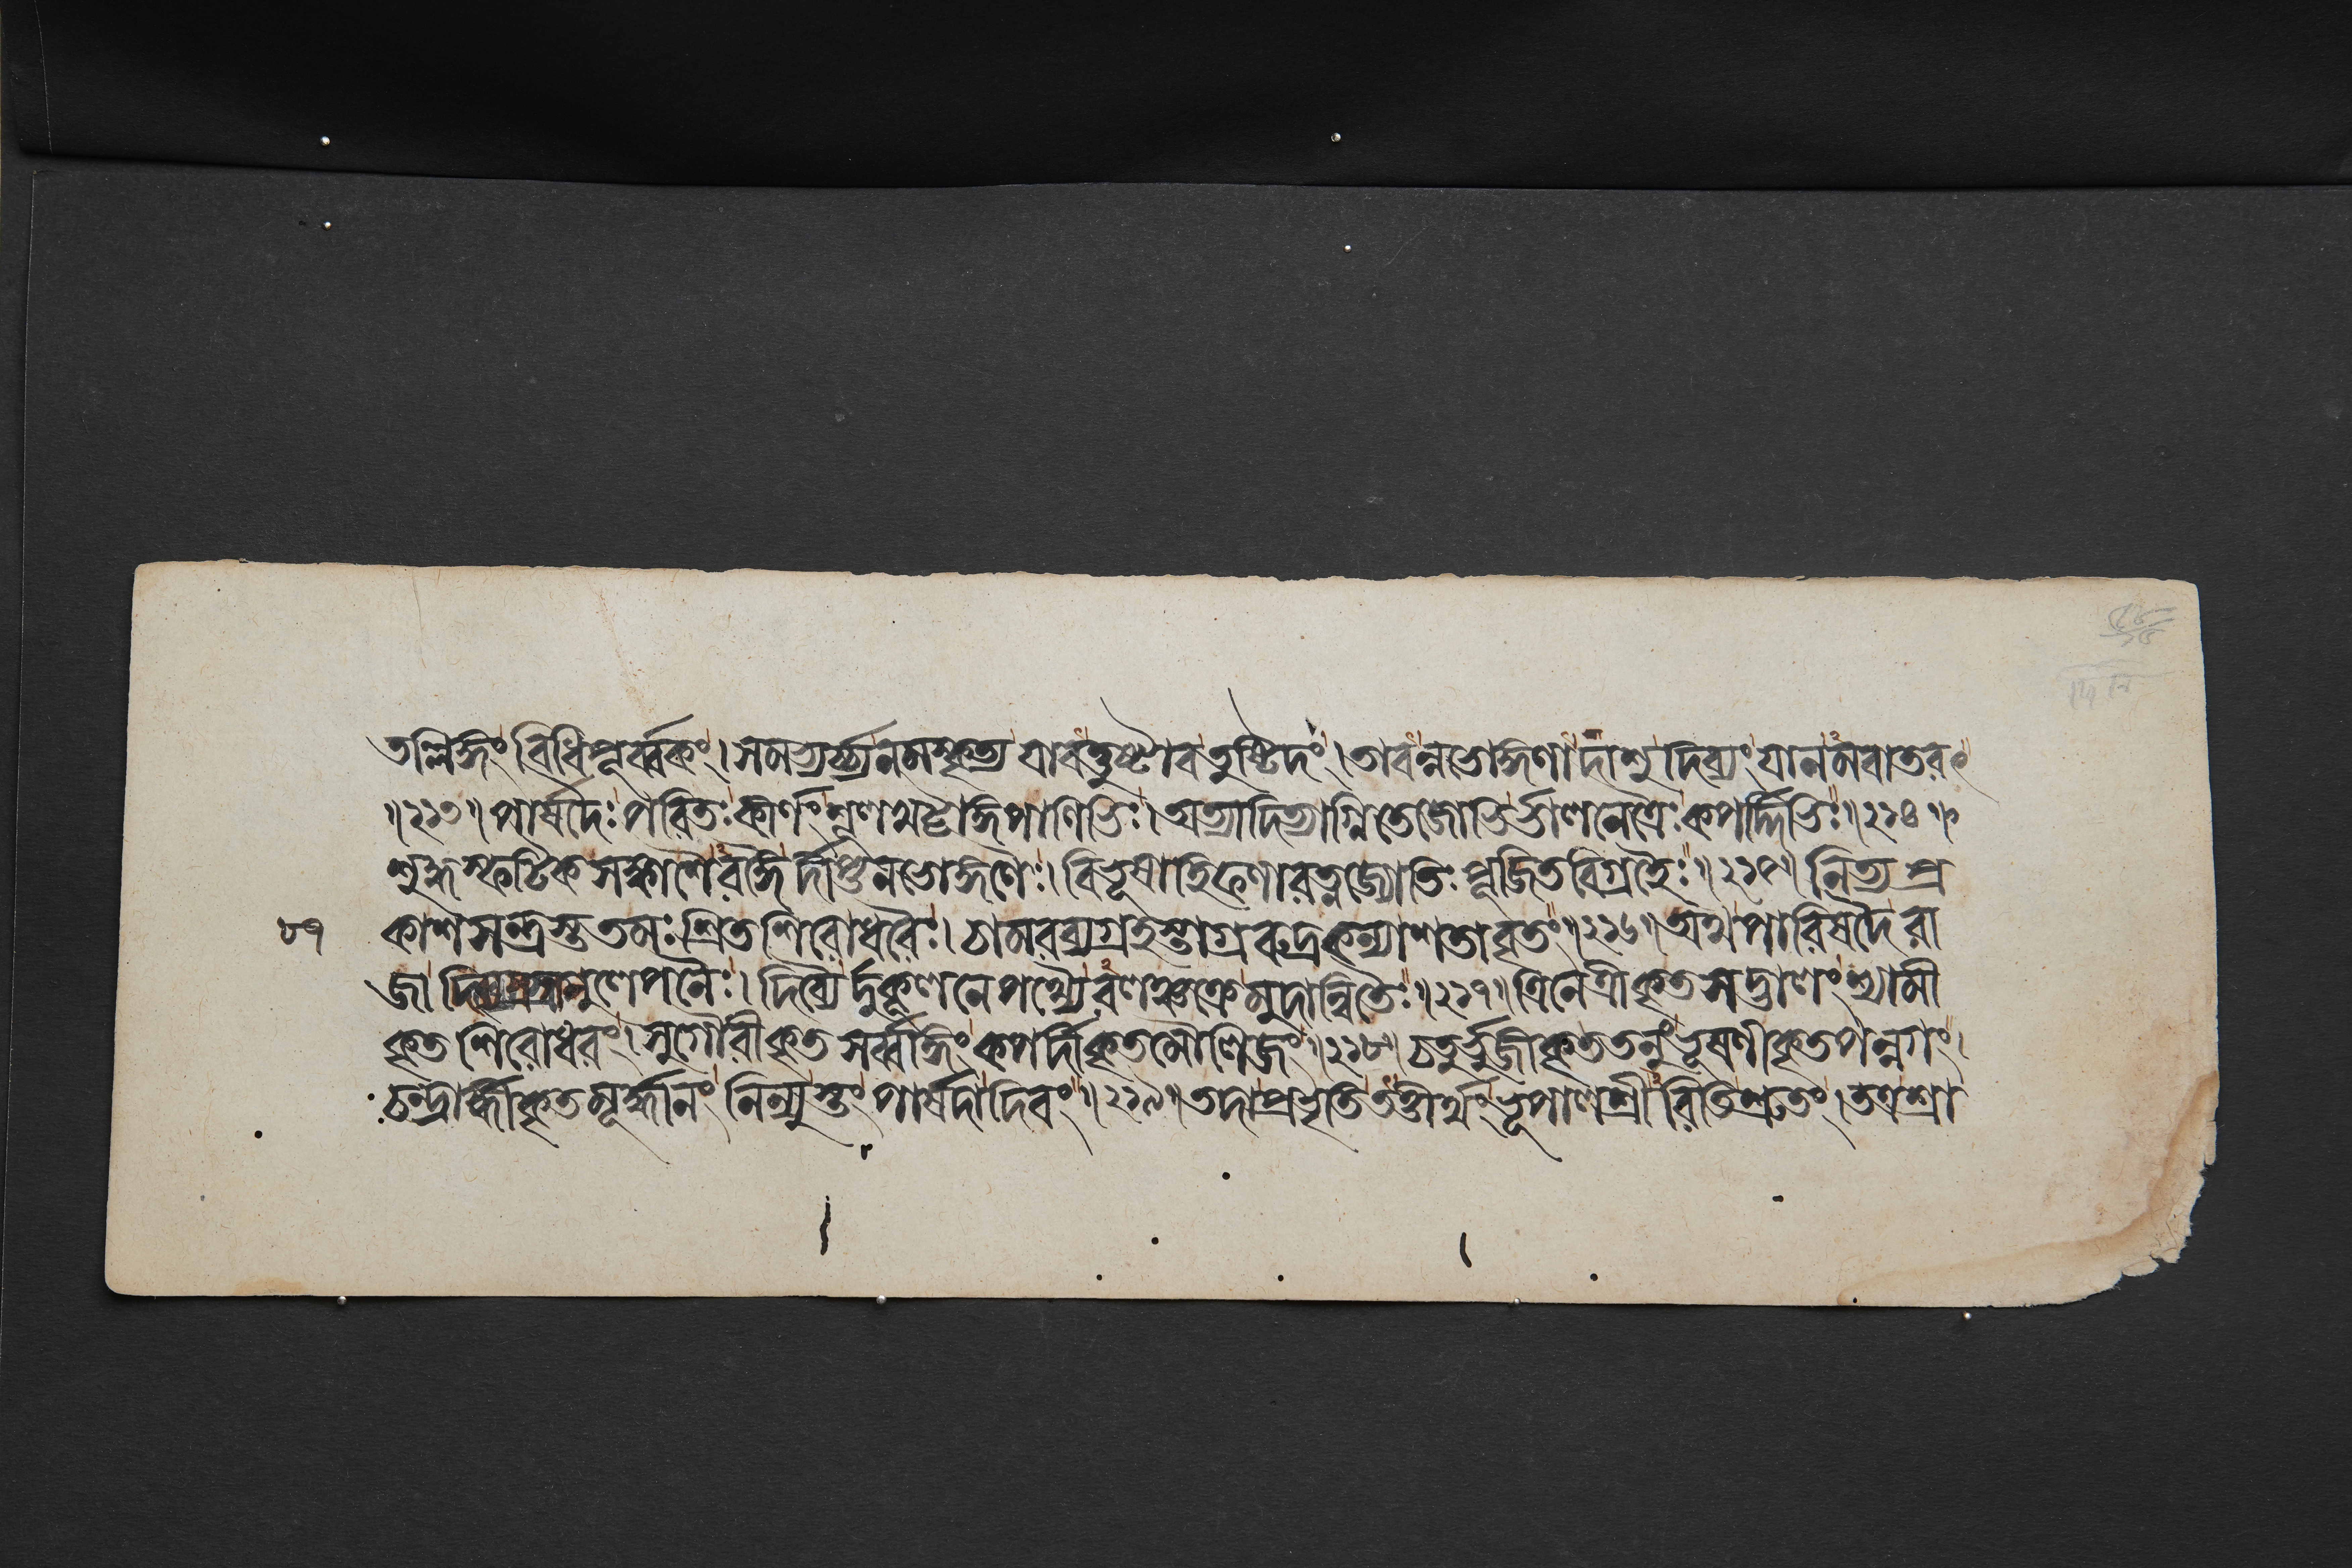 তল্লিঙ্গং বিধিপূর্ব্বকং। সমভ্যর্চ্চ্য নমস্কৃত্য যাবত্তুষ্টাব তুষ্টিদং। তাবন্নভোঙ্গণাদাশু দিব্যং যানমবাতরৎ
॥২১৩॥ পার্ষদৈঃ পরিতঃ কীর্ণং শূলখট্বাঙ্গপাণিভিঃ। অত্যাদিত্যাগ্নিতেজোভির্ভালনেত্রৈঃ কপর্দ্দিভিঃ॥২১৪॥
শুদ্ধস্ফটিকসঙ্কাশৈরঙ্গৈর্দীপ্তনভোঙ্গণৈঃ। বিভূষাহিফণারত্নজ্যোতিঃপূজিতবিগ্রহৈঃ॥২১৫॥ নিত্যপ্র
৮৭ কাশসন্ত্রস্ততমঃশ্রিতশিরোধরৈঃ। চামরব্যগ্রহস্তাগ্ররুদ্রকন্যাশতাবৃতং॥২১৬॥ অথ পারিষদৈ রা
জা দিব্যস্রগনুলেপনৈঃ। দিব্যৈর্দুকূলনেপথ্যৈরলঞ্চক্রে মুদান্বিতৈঃ॥২১৭॥ ত্রিনেত্রীকৃতসদ্ভালং শ্যামী
কৃতশিরোধরং। সুগৌরীকৃতসর্ব্বাঙ্গং কপর্দীকৃতমৌলিজং॥২১৮॥ চতুর্ভুজীকৃততনুং ভূষণীকৃতপন্নগং।
চন্দ্রার্দ্ধীকৃতমূর্দ্ধানং নিন্যুস্তং পার্ষদা দিবং॥২১৯॥ তদাপ্রভৃতি তত্তীর্থং ভূপালশ্রীরিতিশ্রুতং। তত্র শ্রা